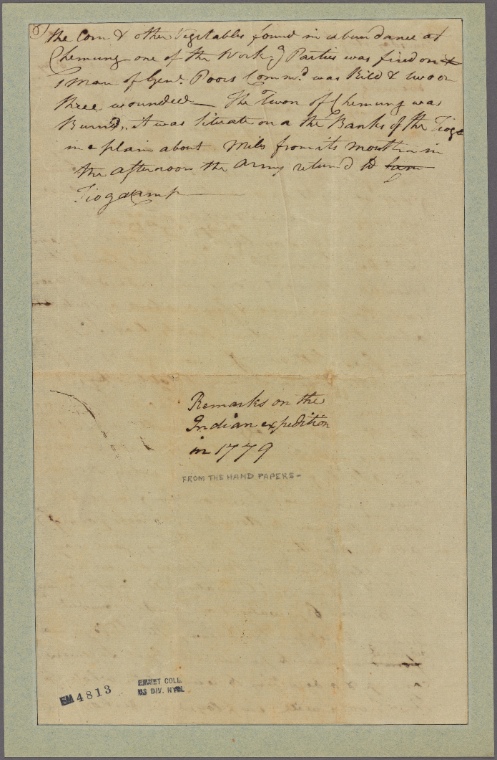 5)
the Corn & other Vegitables found in abundance at
Chemung one of the Work.g Parties was fired on
1 Man of Gen.l Poors Comm.d was Kild & two or
three wounded— The Twon of Chemung was
Burn'd, it was Situate on a the Banks of the Tioga
in a plain about Miles from its mouth in
the afternoon the Army return'd to
Tioga Camp
Remarks on the
Indian expedition
in 1779
FROM THE HAND PAPERS-
EM 4813
EMMET COLL.
MS DIV. NYPL